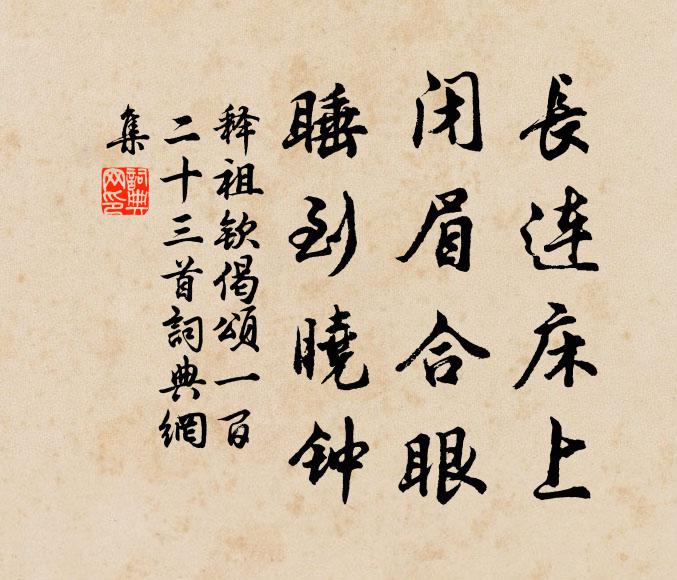 長連床上
闭眉合眼
睡到曉钟
释祖欽偈頌一百
二十三首詞典網
集
詞典
网印